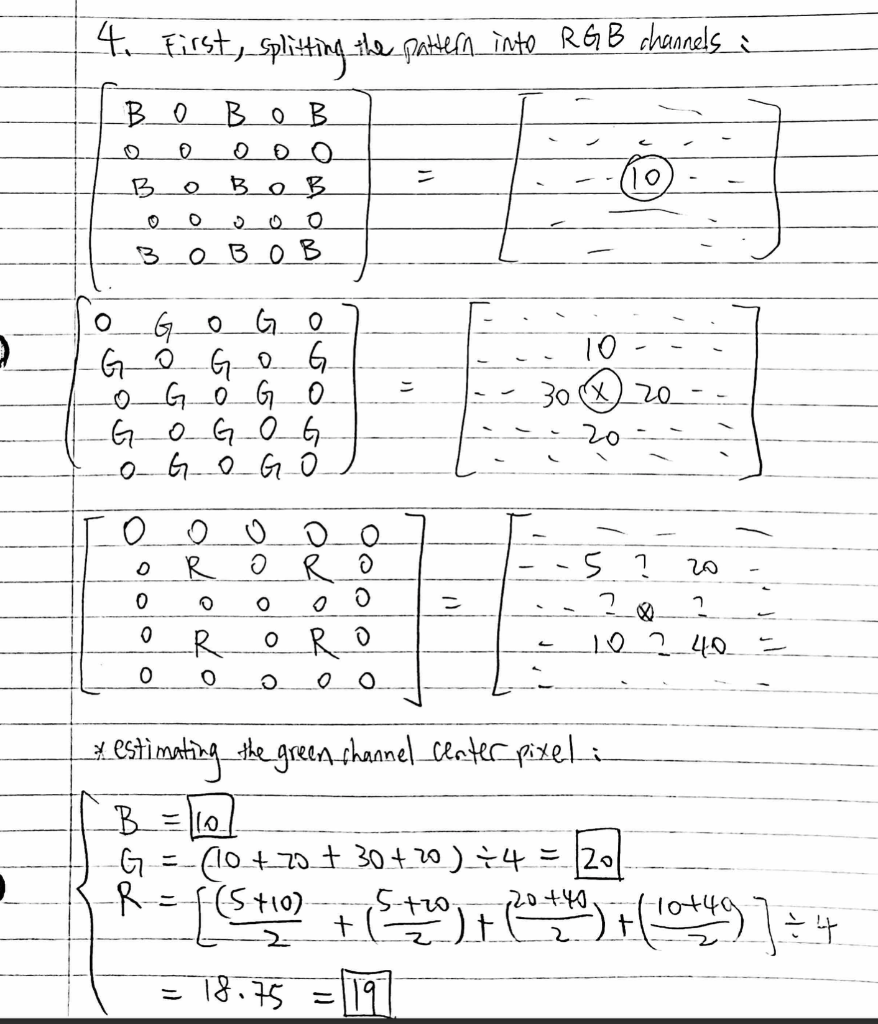 4. First, splitting the pattern into RGB channels :
B 0 B 0 B
0 0 0 0 0
B 0 B 0 B = 10
0 0 0 0 0
B 0 B 0 B
0 G 0 G 0
G 0 G 0 G 10
0 G 0 G 0 = 30 x 20
G 0 G 0 G 20
0 G 0 G 0
0 0 0 0 0
0 R 0 R 0 5 ? 20
0 0 0 0 0 = ? x ?
0 R 0 R 0 10 ? 40
0 0 0 0 0
* estimating the green channel center pixel :
B = 10
G = (10 + 20 + 30 + 20) ÷ 4 = 20
R = [(5+10)/2 + (5+20/2) + (20+40/2) + (10+40/2)] ÷ 4
= 18.75 = 19